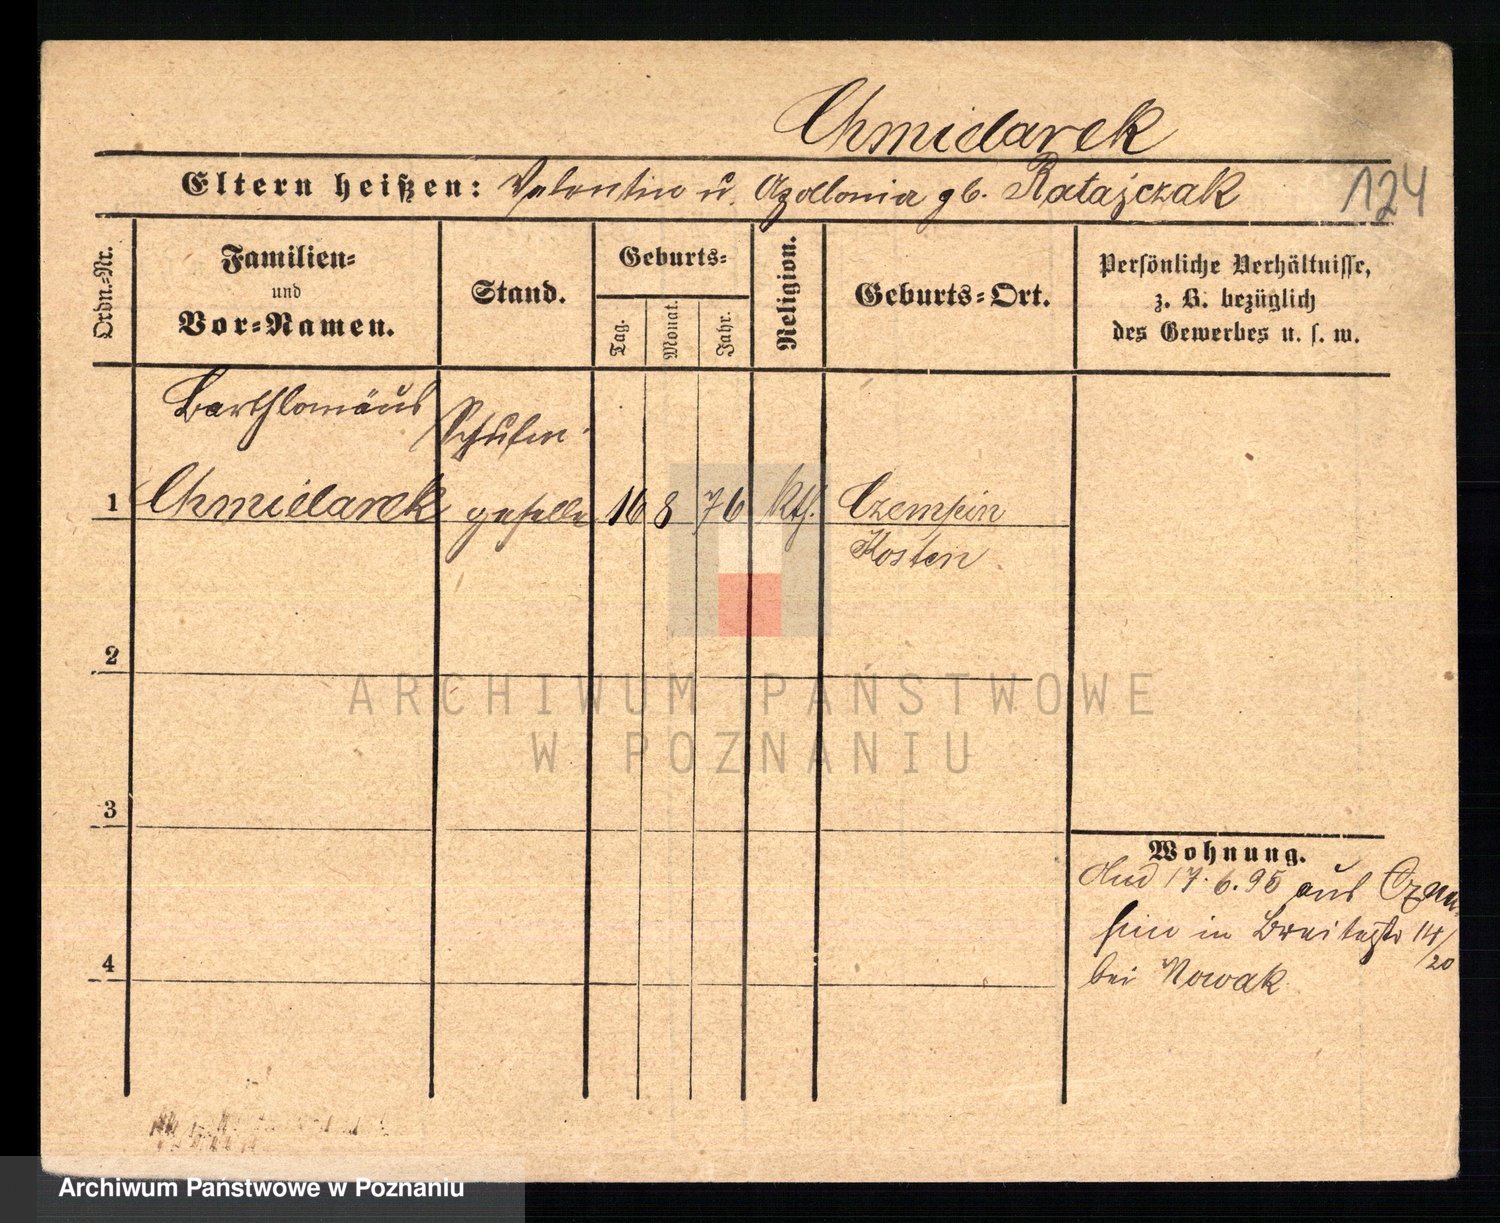 Chmielarek
Eltern heißen: Valentin u. Apollonia gb. Ratajczak
124
Ordn.-Nr.
Familien-
und
Vor-Namen.
Stand.
Geburts-
Tag.
Monat.
Jahr.
Religion.
Geburts-Ort.
Persönliche Verhältnisse,
z. B. bezüglich
des Gewerbes u. s. w.
Bartholomäus
1 Chmielarek geselle 16 8 76 kth. Czempin
Kosten
2
3
4
Wohnung.
17.6.95 aus Czem-
pin in Breitestr 14/20
bei Nowak
ARCHIWUM PAŃSTWOWE
W POZNANIU
Archiwum Państwowe w Poznaniu